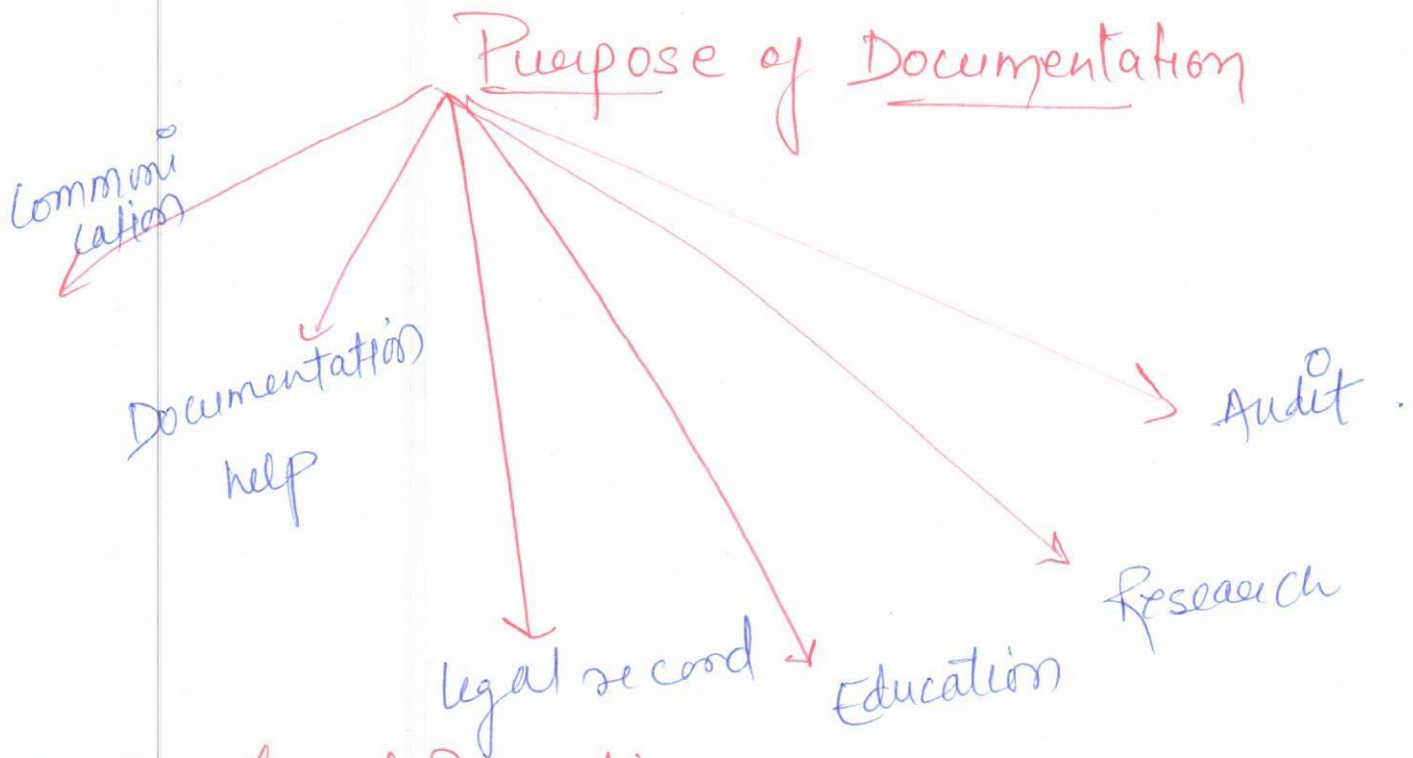 Purpose of Documentation
Communi
cation
Documentation
help
legal record
Education
Research
Audit.